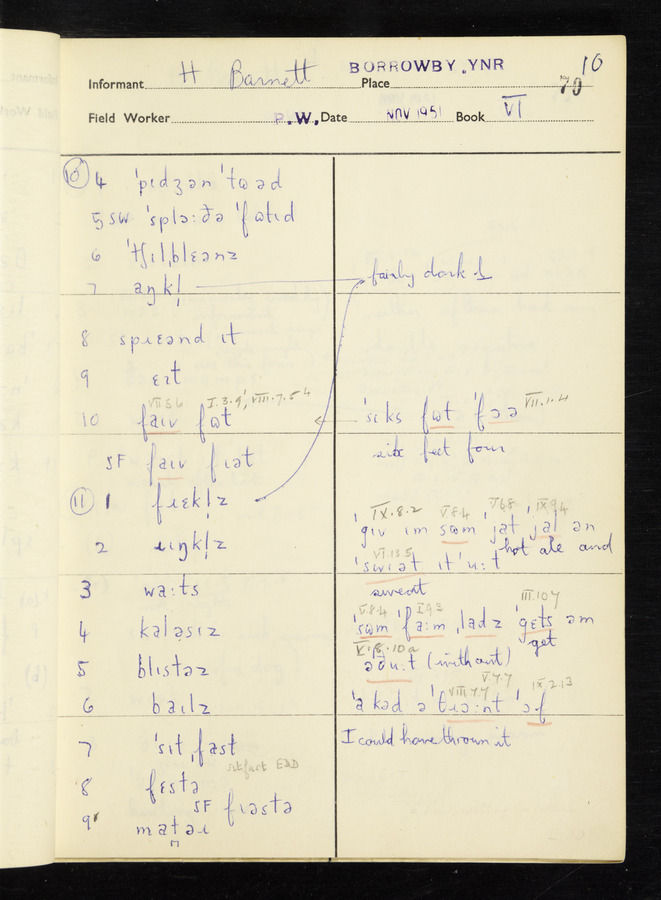 BORROWBY . YNR 10
Informant H Barnett Place 70
Field Worker P.W. Date NOV 1951 Book VI
10 4 ˈpɪdʒən ˈtɷəd
5 SW ˈsplaːðə ˈfɷtɪd
6 ˈtʃɪlˌblɛənz
7 aŋkl̩ fairly dark l
8 spɹɛənd ɪt
9 ɛɪt
VII.5.6 I.3.9, VIII.7.5 4
10 faɪv fɷt ˈsɪks fɷt ˈfɔə VII.1.4
SF faɪv fɪət six feet four
11 1 fɹɛkl̩z
IX.8.2 V.8.4 V.6.8 IX.9.4
ˈgɪv ɪm sɷm ˈjat ˈjal ən
2 ɹɪŋkl̩z hot ale and
VI.13.5
ˈswɪət ɪt ˈuːt
3 waːts sweat
V.8.4 I.9.3 III.10.7
4 kaləsɪz ˈsɷm ˈfaːm ˌladz ˈgɛts əm
get
V.8.10a
5 blɪstəz əðuːt (without)
V.7.7 VIII.7.7 IX.2.13
6 baɪlz ˈa kəd ə ˈθɹɔːnt ˈɔf
7 ˈsɪtˌfast I could have thrown it
sitfast EDD
8 fɛstə
SF fɪəstə
9 matəɹ